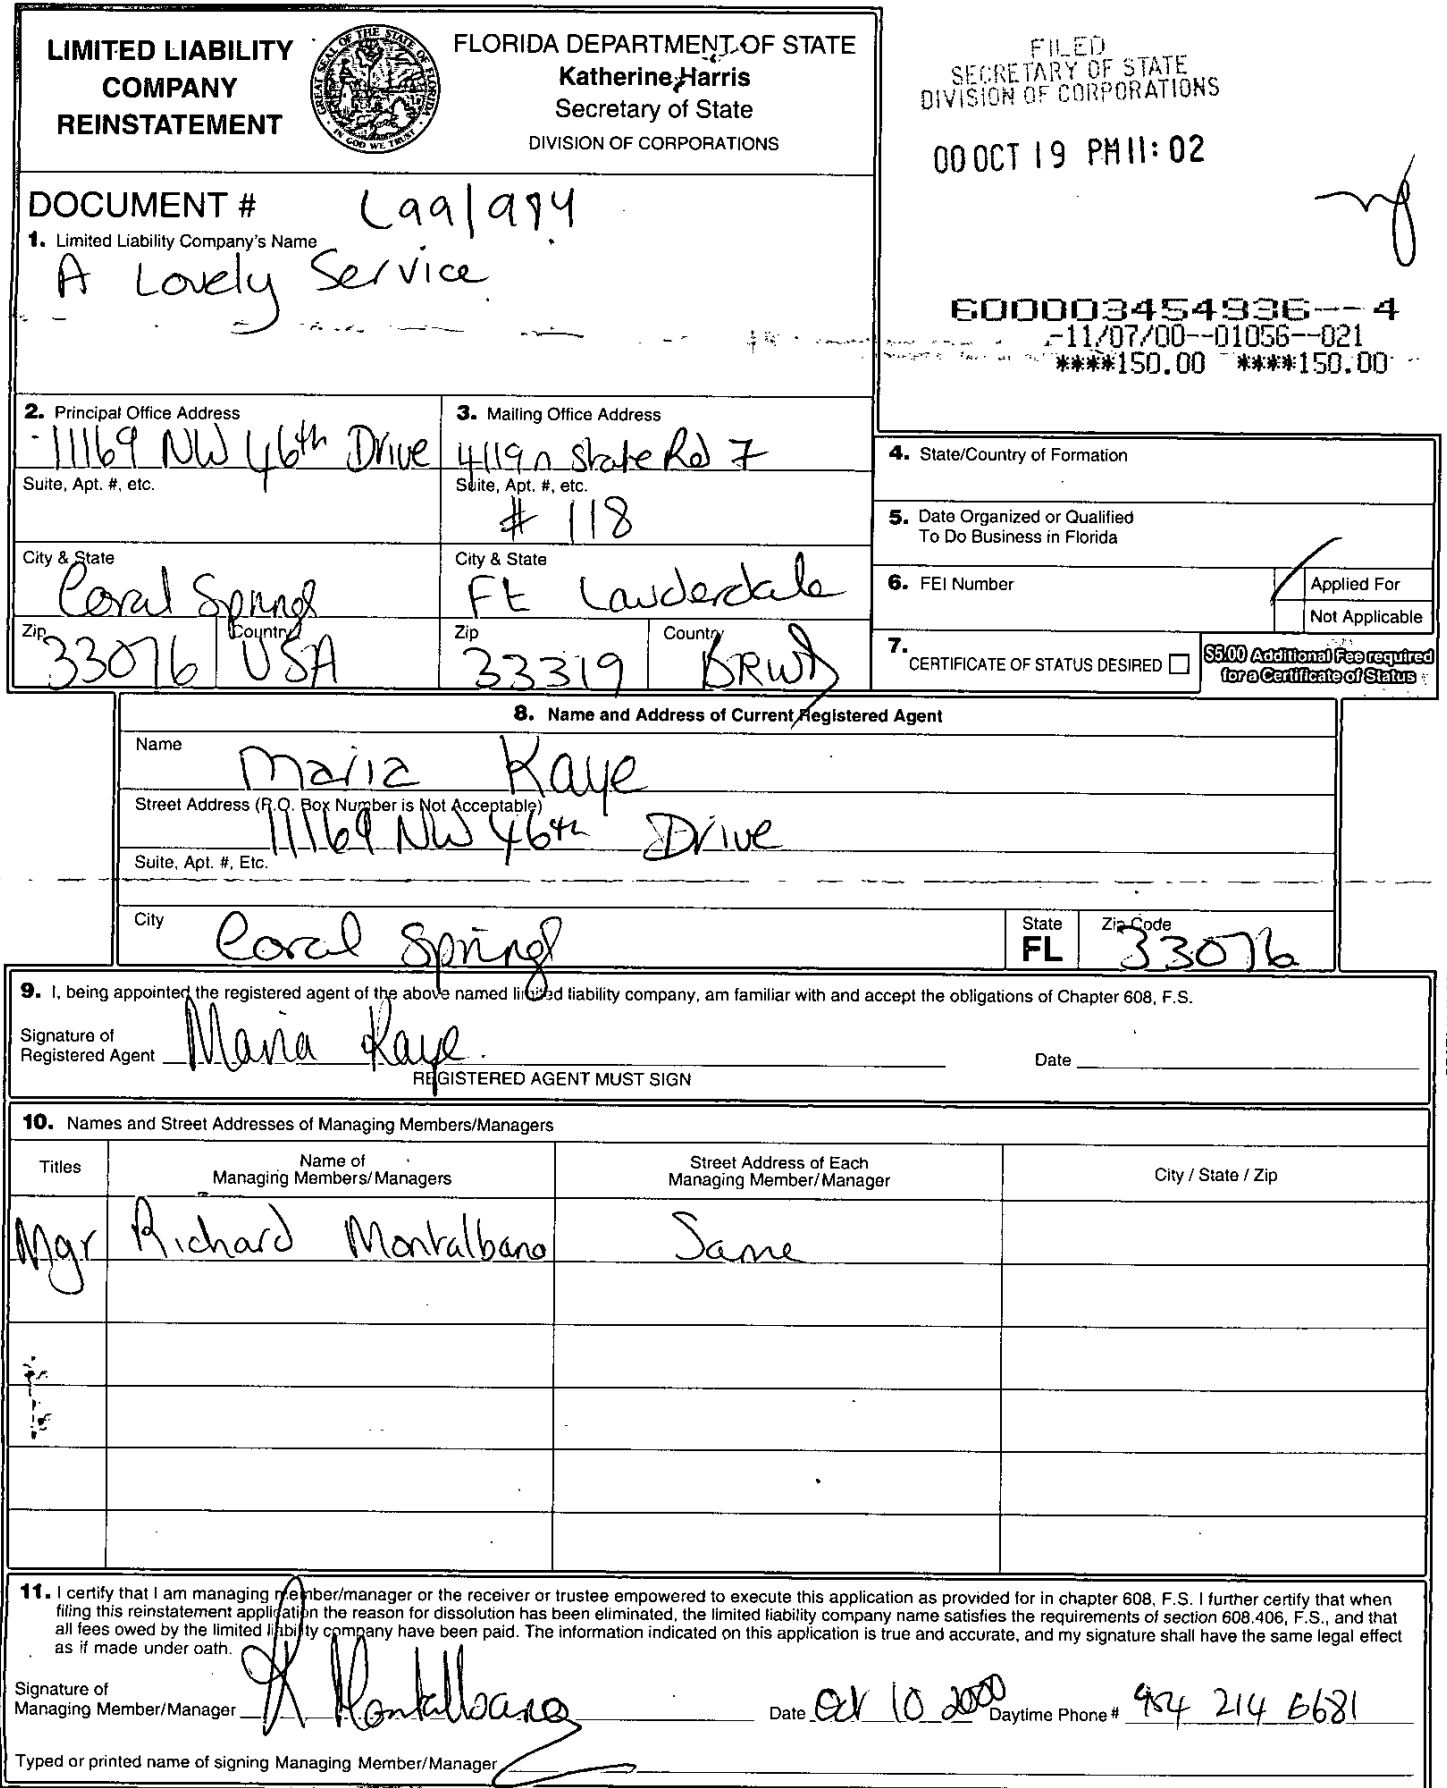 LIMITED LIABILITY
COMPANY
REINSTATEMENT
GREAT SEAL OF THE STATE OF FLORIDA
IN GOD WE TRUST
FLORIDA DEPARTMENT OF STATE
Katherine Harris
Secretary of State
DIVISION OF CORPORATIONS
FILED
SECRETARY OF STATE
DIVISION OF CORPORATIONS
00 OCT 19 PM 11: 02
DOCUMENT #
1. Limited Liability Company's Name
A Lovely Service
600003454936--4
-11/07/00--01056--021
****150.00 ****150.00
2. Principal Office Address
11169 NW 46th Drive
Suite, Apt. #, etc.
City & State
Coral Springs
Zip
33076
Country
USA
3. Mailing Office Address
4119 n State Rd 7
Suite, Apt. #, etc.
# 118
City & State
Ft Lauderdale
Zip
33319
Country
BRWD
4. State/Country of Formation
5. Date Organized or Qualified
To Do Business in Florida
6. FEI Number
Applied For
Not Applicable
7. CERTIFICATE OF STATUS DESIRED
$5.00 Additional Fee required
for a Certificate of Status
8. Name and Address of Current Registered Agent
Name
Maria Kaye
Street Address (P.O. Box Number is Not Acceptable)
11169 NW 46th Drive
Suite, Apt. #, Etc.
City
Coral Springs
State
FL
Zip Code
33076
9. I, being appointed the registered agent of the above named limited liability company, am familiar with and accept the obligations of Chapter 608, F.S.
Signature of
Registered Agent Maria Kaye
Date
REGISTERED AGENT MUST SIGN
10. Names and Street Addresses of Managing Members/Managers
Titles
Name of
Managing Members/Managers
Street Address of Each
Managing Member/Manager
City / State / Zip
Mgr Richard Montalbano Same
11. I certify that I am managing member/manager or the receiver or trustee empowered to execute this application as provided for in chapter 608, F.S. I further certify that when
filing this reinstatement application the reason for dissolution has been eliminated, the limited liability company name satisfies the requirements of section 608.406, F.S., and that
all fees owed by the limited liability company have been paid. The information indicated on this application is true and accurate, and my signature shall have the same legal effect
as if made under oath.
Signature of
Managing Member/Manager R Montalbano Date Oct 10 2000 Daytime Phone # 954 214 6681
Typed or printed name of signing Managing Member/Manager